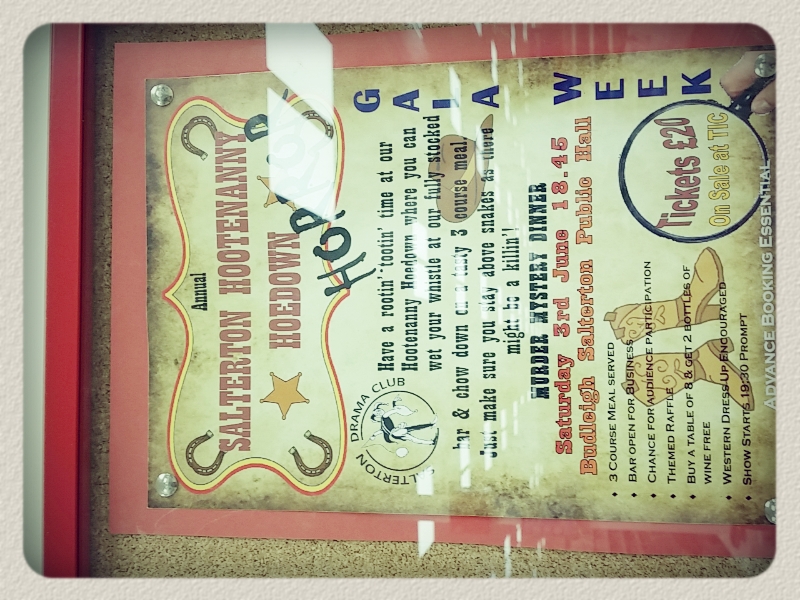 Annual
SALTERTON HOOTENANNY
HOEDOWN
GALA WEEK
SALTERTON DRAMA CLUB
Have a rootin'-tootin' time at our
Hootenanny Hoedown where you can
wet your whistle at our fully stocked
bar & chow down on a tasty 3 course meal.
Just make sure you stay above snakes as there
might be a killin'!
MURDER MYSTERY DINNER
Saturday 3rd June 18.45
Budleigh Salterton Public Hall
♦ 3 COURSE MEAL SERVED
♦ BAR OPEN FOR BUSINESS
♦ CHANCE FOR AUDIENCE PARTICIPATION
♦ THEMED RAFFLE
♦ BUY A TABLE OF 8 & GET 2 BOTTLES OF
WINE FREE
♦ WESTERN DRESS UP ENCOURAGED
♦ SHOW STARTS 19:30 PROMPT
Tickets £20
On Sale at TIC
ADVANCE BOOKING ESSENTIAL